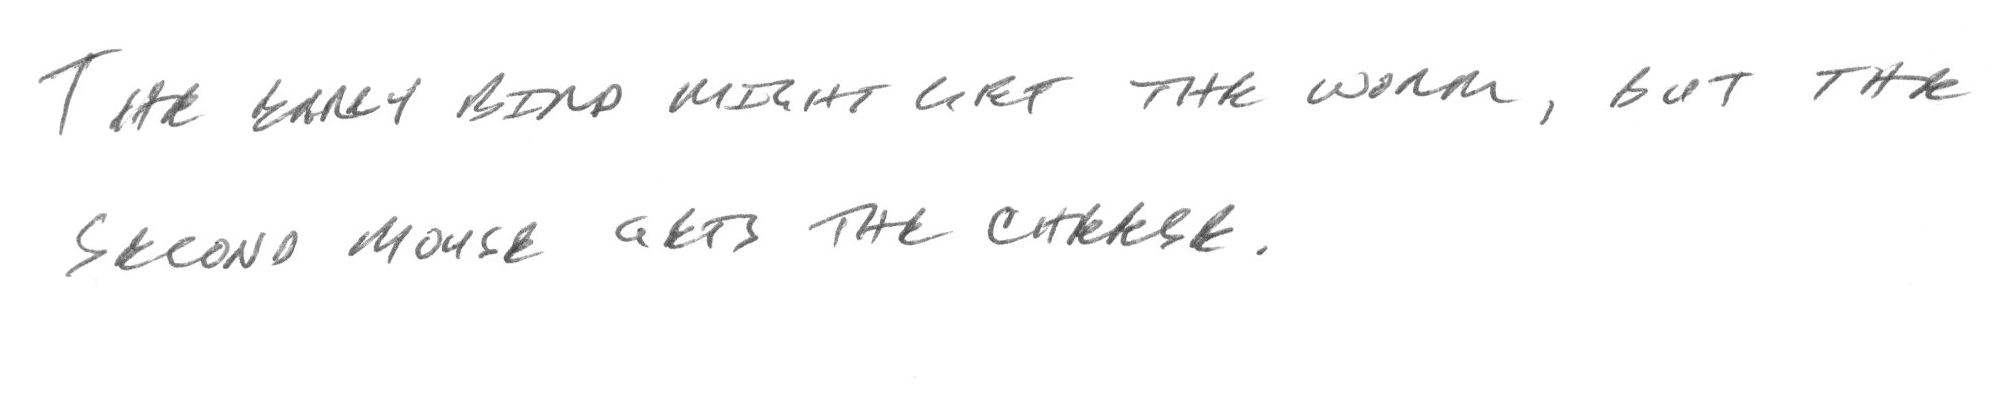 THE EARLY BIRD MIGHT GET THE WORM, BUT THE
SECOND MOUSE GETS THE CHEESE.